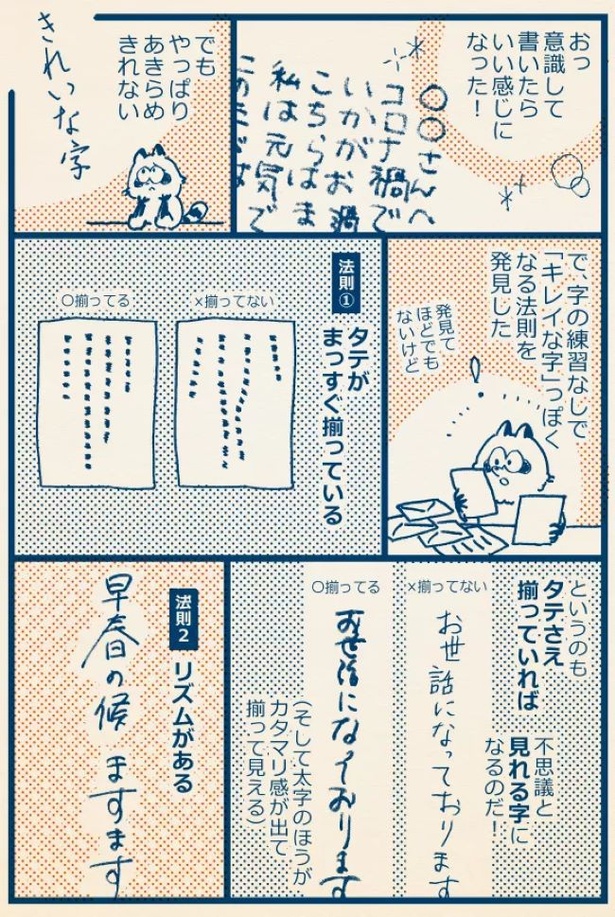 おっ
意識して
書いたら
いい感じに
なった！
〇〇さんへ
コロナ禍で
いかがお過
こちらはま
私は元気で
でも
やっぱり
あきらめ
きれない
きれいな字
で、字の練習なしで
「キレイな字」っぽく
なる法則を
発見した
発見て
ほどでも
ないけど
法則①
タテが
まっすぐ揃っている
×揃ってない
〇揃ってる
というのも
タテさえ
揃っていれば
不思議と
見れる字に
なるのだ！
×揃ってない
お世話になっております
〇揃ってる
お世話になっております
（そして太字のほうが
カタマリ感が出て
揃って見える）
法則2
リズムがある
早春の候
ますます